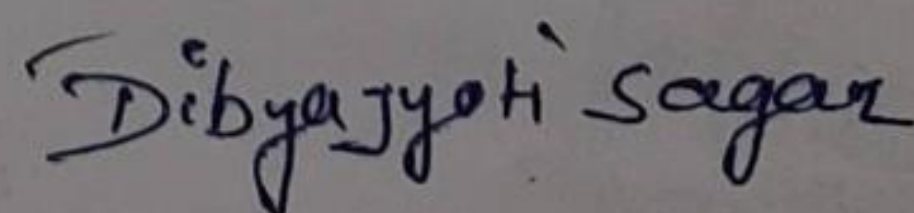 Dibyajyoti Sagar